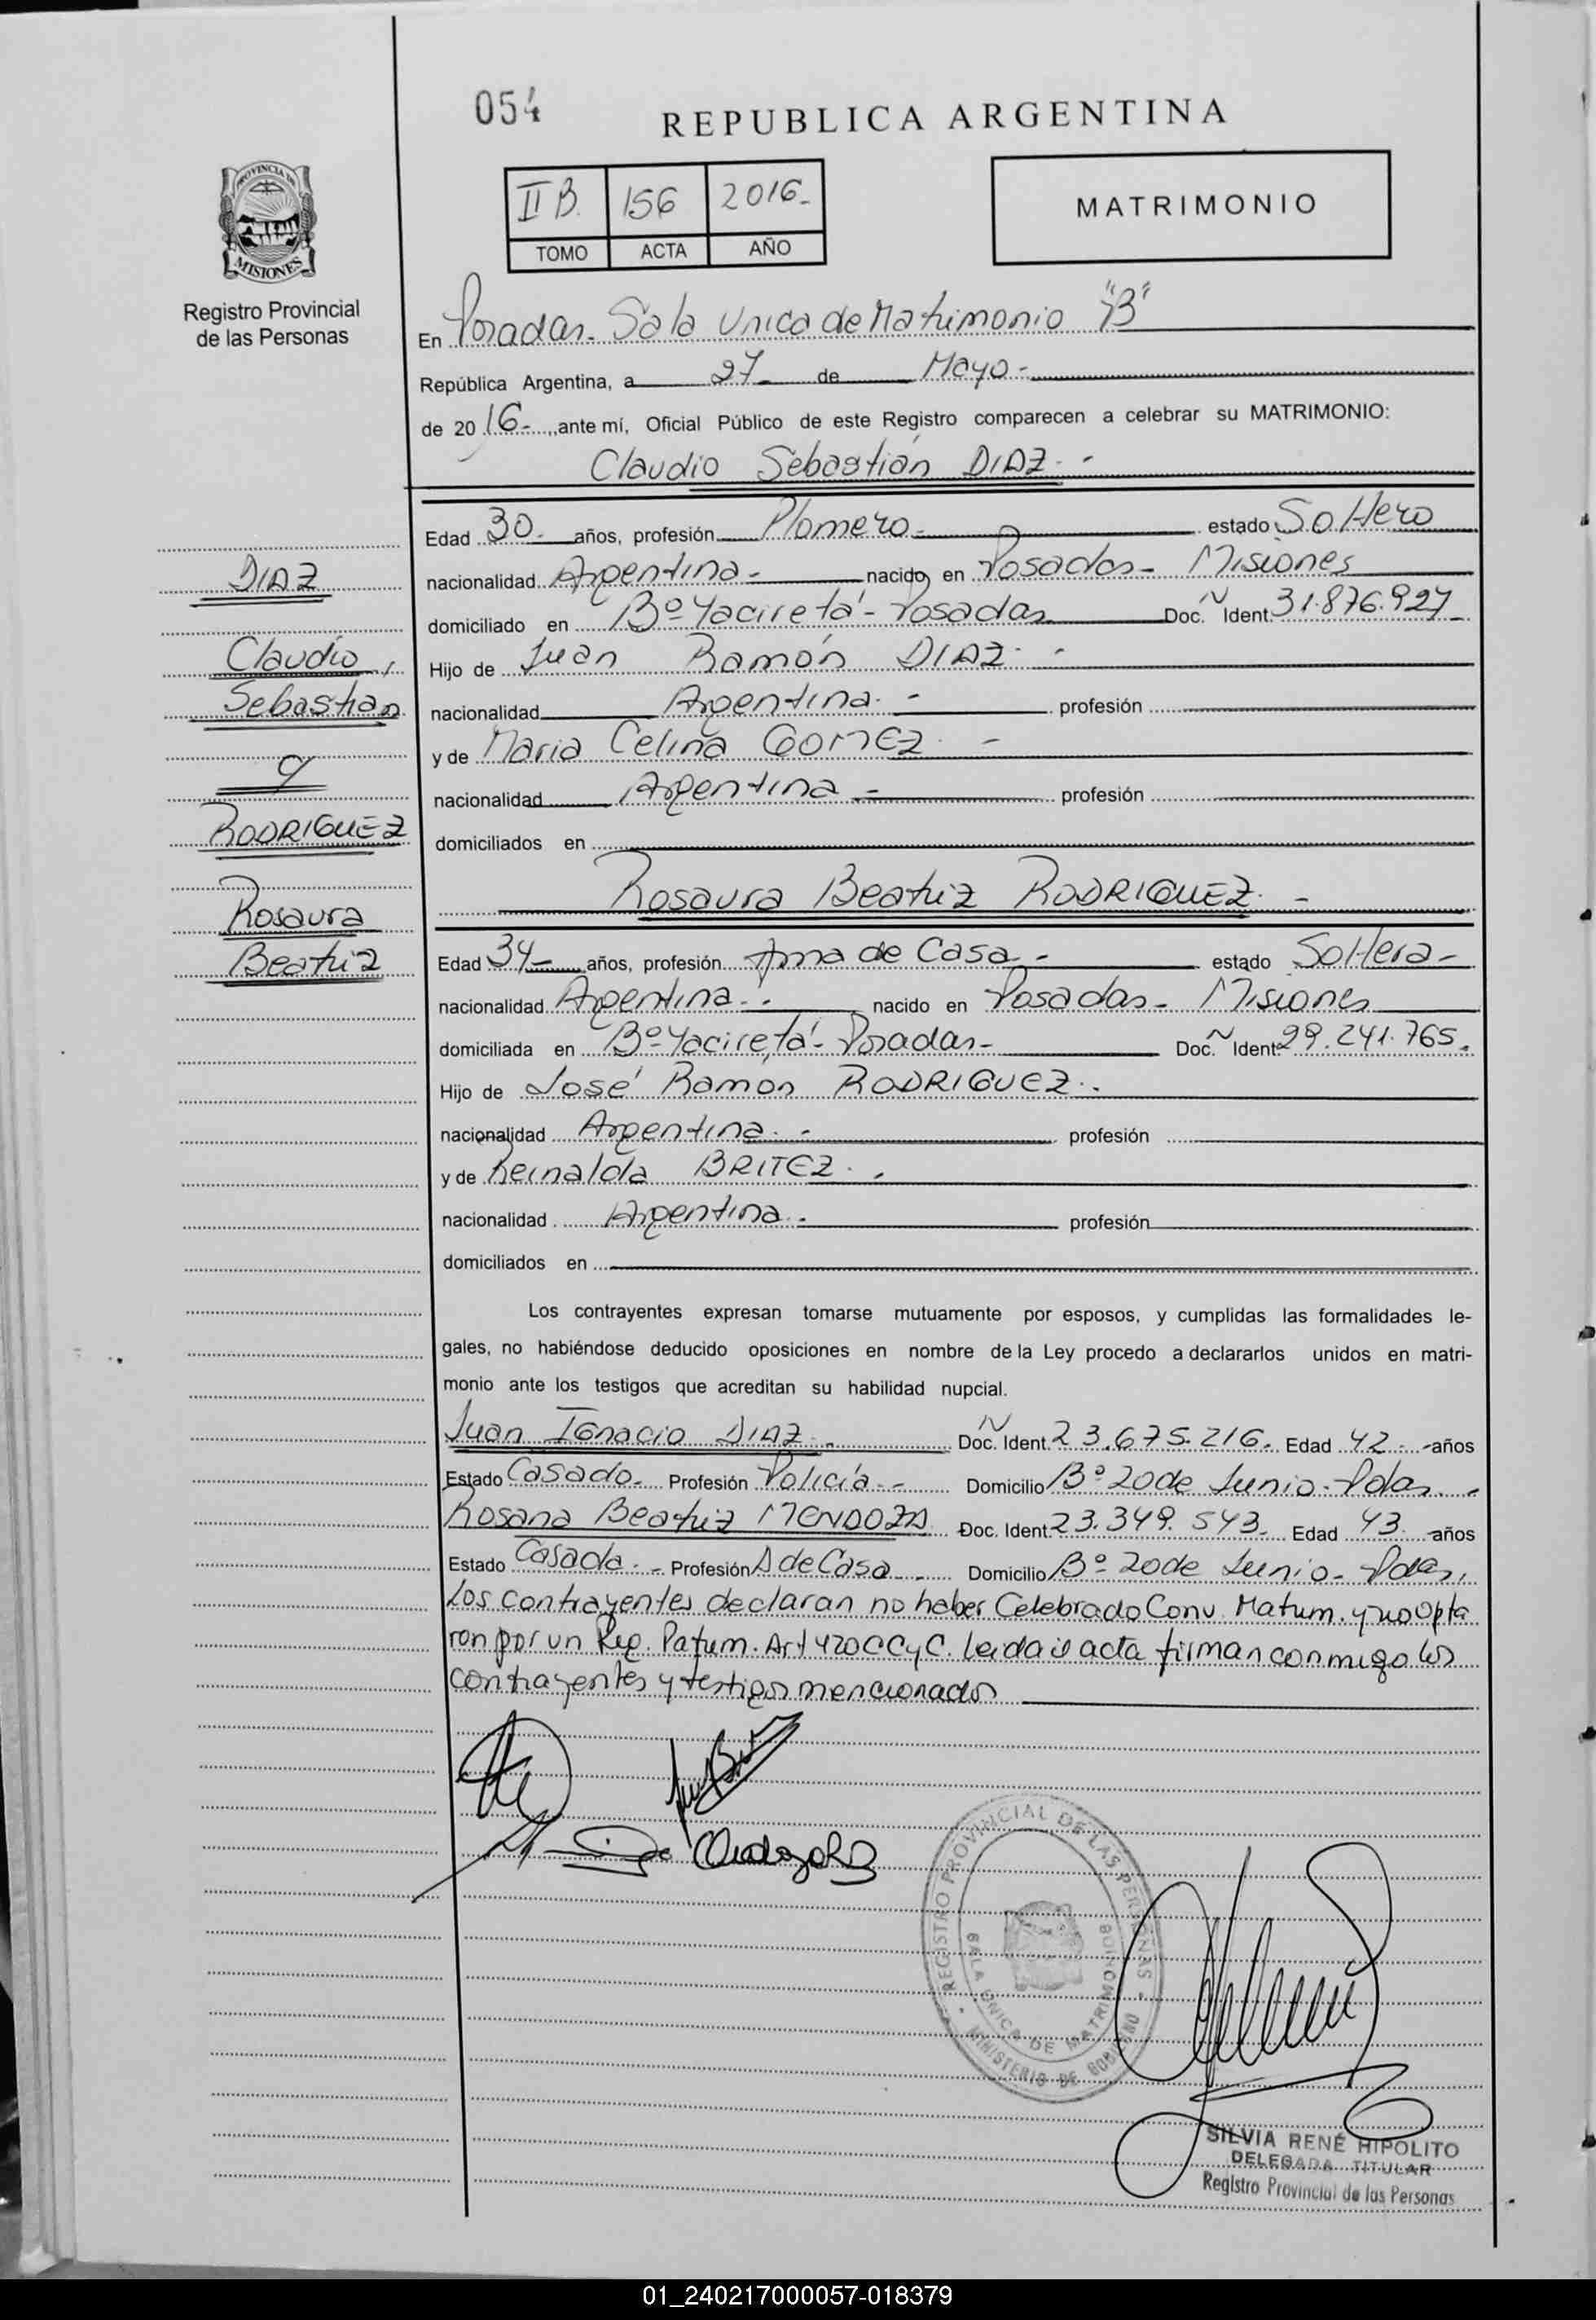 054
REPUBLICA ARGENTINA
II B. 156 2016-
TOMO ACTA AÑO
MATRIMONIO
PROVINCIA DE
MISIONES
Registro Provincial
de las Personas
En Posadas- Sala Unica de Matrimonio "B"
República Argentina, a 27- de Mayo-
de 2016-, ante mí, Oficial Público de este Registro comparecen a celebrar su MATRIMONIO:
Claudio Sebastián DIAZ.-
Edad 30- años, profesión Plomero- estado Soltero
nacionalidad Argentina- nacido en Posadas- Misiones
domiciliado en Bº Yacireta'- Posadas Doc. N Ident. 31.876.927-
Hijo de Juan Ramón DIAZ.-
nacionalidad Argentina.- profesión
y de Maria Celina GOMEZ.-
nacionalidad Argentina- profesión
domiciliados en
DIAZ
Claudio,
Sebastian
y
RODRIGUEZ
Rosaura
Beatriz
Rosaura Beatriz RODRIGUEZ.-
Edad 34- años, profesión Ama de Casa- estado Soltera-
nacionalidad Argentina.- nacido en Posadas- Misiones
domiciliada en Bº Yacireta'- Posadas- Doc. N Ident. 29.241.765.
Hijo de José Ramón RODRIGUEZ.-
nacionalidad Argentina.- profesión
y de Reinalda BRITEZ.-
nacionalidad Argentina.- profesión
domiciliados en
Los contrayentes expresan tomarse mutuamente por esposos, y cumplidas las formalidades le-
gales, no habiéndose deducido oposiciones en nombre de la Ley procedo a declararlos unidos en matri-
monio ante los testigos que acreditan su habilidad nupcial.
Juan Ignacio DIAZ.- Doc. N Ident. 23.675.216. Edad 42- años
Estado Casado- Profesión Policía.- Domicilio Bº 20 de Junio- Pdas.-
Rosana Beatriz MENDOZA Doc. Ident. 23.349.543- Edad 43 años
Estado Casada.- Profesión A de Casa- Domicilio Bº 20 de Junio- Pdas,
Los contrayentes declaran no haber Celebrado Conv. Matrim. y no Opta
ron por un Reg. Patrim. Art 420 CCyC. Leida el acta firman conmigo los
contrayentes y testigos mencionados
REGISTRO PROVINCIAL DE LAS PERSONAS
SALA UNICA DE MATRIMONIOS
MINISTERIO DE GOBIERNO
SILVIA RENÉ HIPOLITO
DELEGADA TITULAR
Registro Provincial de las Personas
01_240217000057-018379